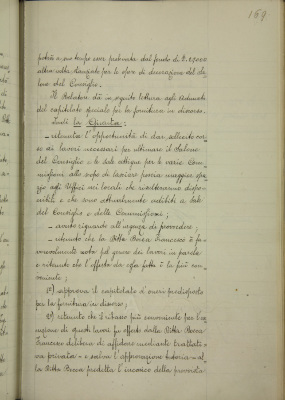 169
potrà a suo tempo esser prelevata dal fondo di £. 19000
altra volta stanziato per le opere di decorazione del Sa-
lone del Consiglio.
Il Relatore dà in seguito lettura agli adunati
del capitolato speciale per la fornitura in discorso.
Indi la Giunta:
- ritenuta l'opportunità di dar
se ai lavori necessari per ultimare il Salone
del Consiglio e le sale attigue per le varie Com-
missioni allo scopo di lasciare poscia maggior spa-
zio agli Uffici nei locali che risulteranno dispo-
nibili e che sono attualmente adibiti a sale
del Consiglio e delle Commissioni;
- avuto riguardo all'urgenza di provvedere;
- ritenuto che la Ditta Bocca Francesco è fa-
vorevolmente nota pel genere dei lavori in parola
e ritenuto che l'offerta da essa fatta è la più con-
veniente;
1°) approva il capitolato d'oneri predisposto
per la fornitura in discorso;
2°) ritenuto che il ribasso più conveniente per l'e-
secuzione di questi lavori fu offerto dalla Ditta Bocca
Francesco delibera di affidare mediante trattati-
va privata - e salvo l'approvazione tutoria - al-
la Ditta Bocca predetta l'incarico della provvista